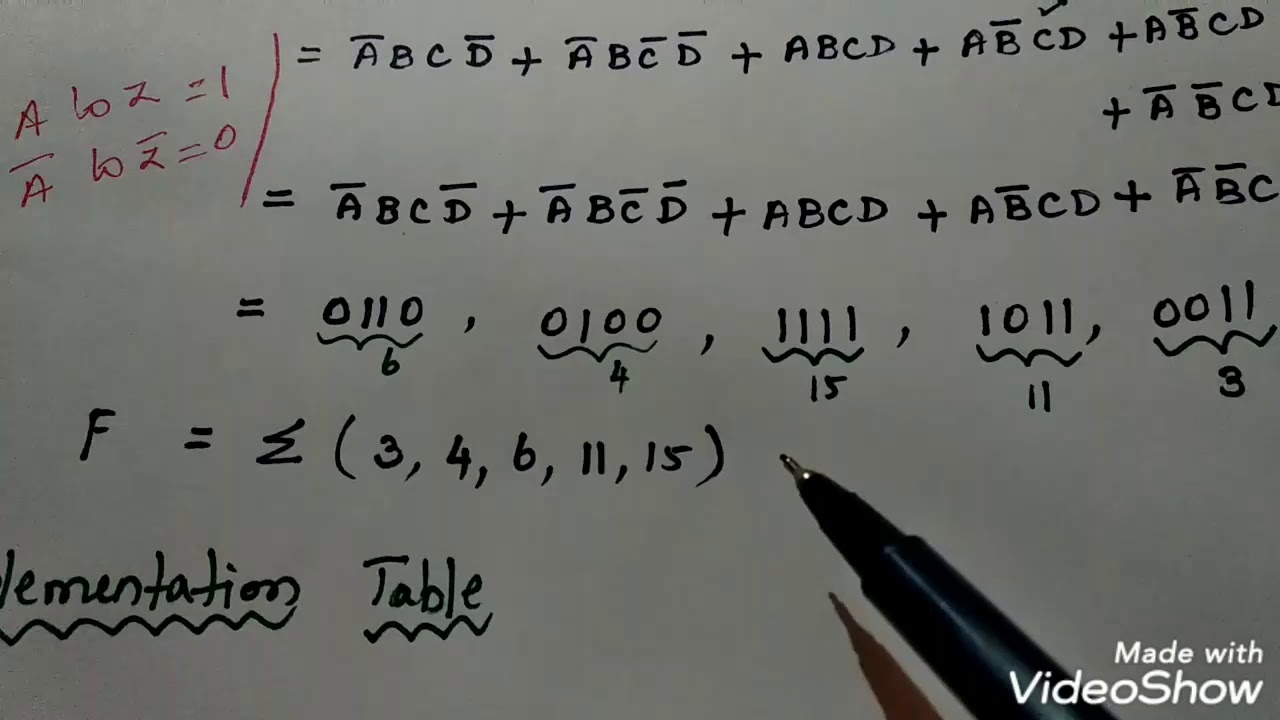 = A̅ B C D̅ + A̅ B C̅ D̅ + A B C D + A B̅ C D + A B̅ C D
+ A̅ B̅ C D
A to Z = 1
A̅ to Z̅ = 0
= A̅ B C D̅ + A̅ B C̅ D̅ + A B C D + A B̅ C D + A̅ B̅ C
= 0110 , 0100 , 1111 , 1011 , 0011
6 4 15 11 3
F = Σ ( 3, 4, 6, 11, 15 )
lementation Table
Made with
VideoShow